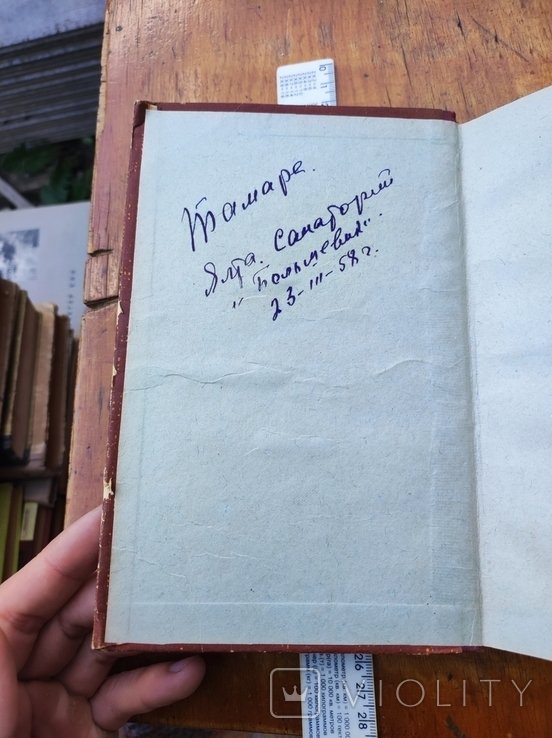 Тамаре.
Ялта. Санаторий
"Большевик".
23-III-58 г.
26 27 28
VIOLITY